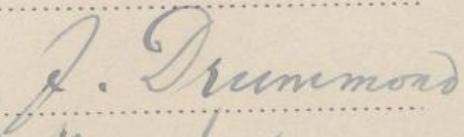 J. Drummond